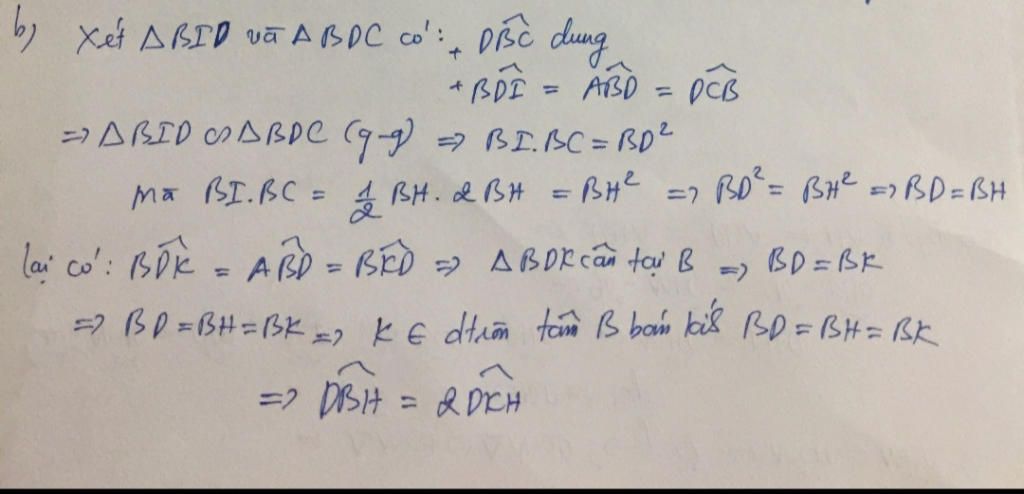 b) Xét ΔBID và ΔBDC có: + DBC^ chung
+ BDI^ = ABD^ = DCB^
=> ΔBID ∽ ΔBDC (g-g) => BI.BC = BD²
mà BI.BC = 1/2 BH. 2BH = BH² => BD² = BH² => BD = BH
lại có: BDK^ = ABD^ = BKD^ => ΔBDK cân tại B => BD = BK
=> BD = BH = BK => K ∈ đtròn tâm B bán kính BD = BH = BK
=> DBH^ = 2DKH^